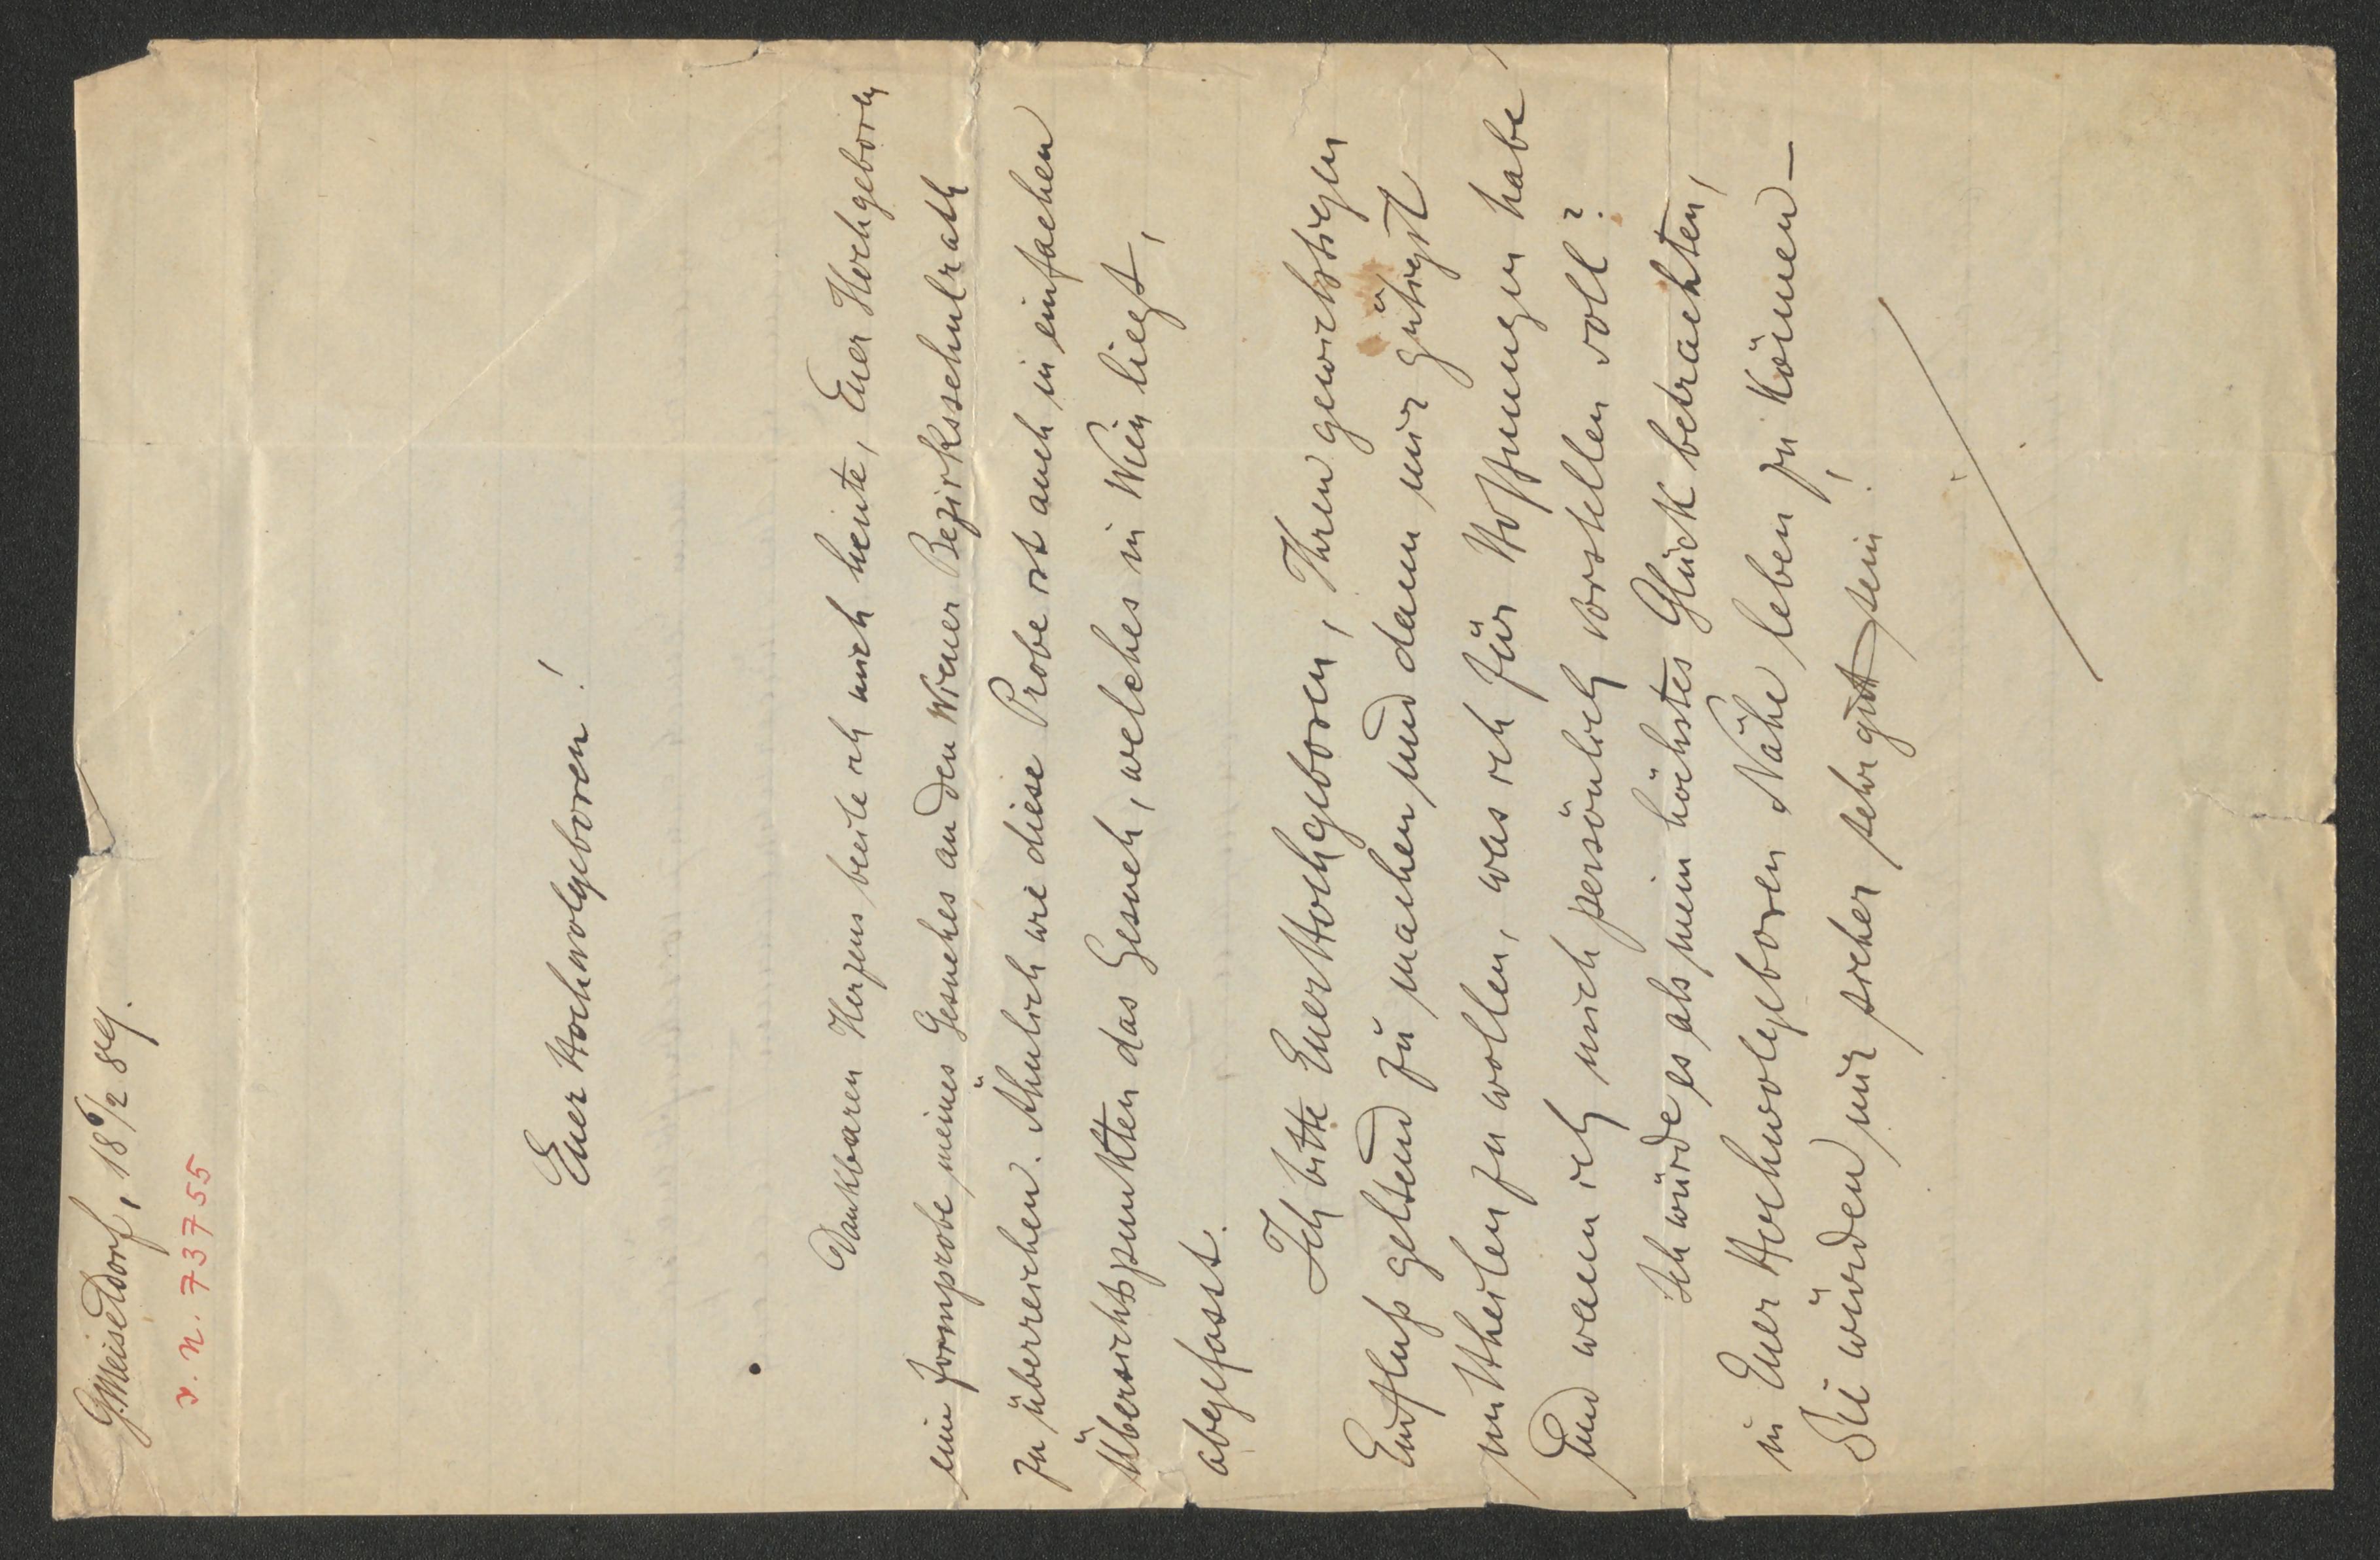 G. Meiseldorf, 18/2 89.
v. N. 73755
Euer Hochwolgeboren!
Dankbaren Herzens beeile ich mich heute, Euer Hochgeboren
eine Formprobe meines Gesuches an den Wiener Bezirksschulrath
zu überreichen. Ähnlich wie diese Probe ist auch in einfachen
Übersichtspunkten das Gesuch, welches in Wien liegt,
abgefasst.
Ich bitte Euer Hochgeboren, Ihren gewichtigen
Einfluß geltend zu machen und dann mir gütigst
mittheilen zu wollen, was ich für Hoffnungen habe
und wann ich mich persönlich vorstellen soll?
Ich würde es als mein höchstes Glück betrachten,
in Euer Hochwolgeboren Nähe leben zu können –
Sie würden mir sicher sehr gut sein!